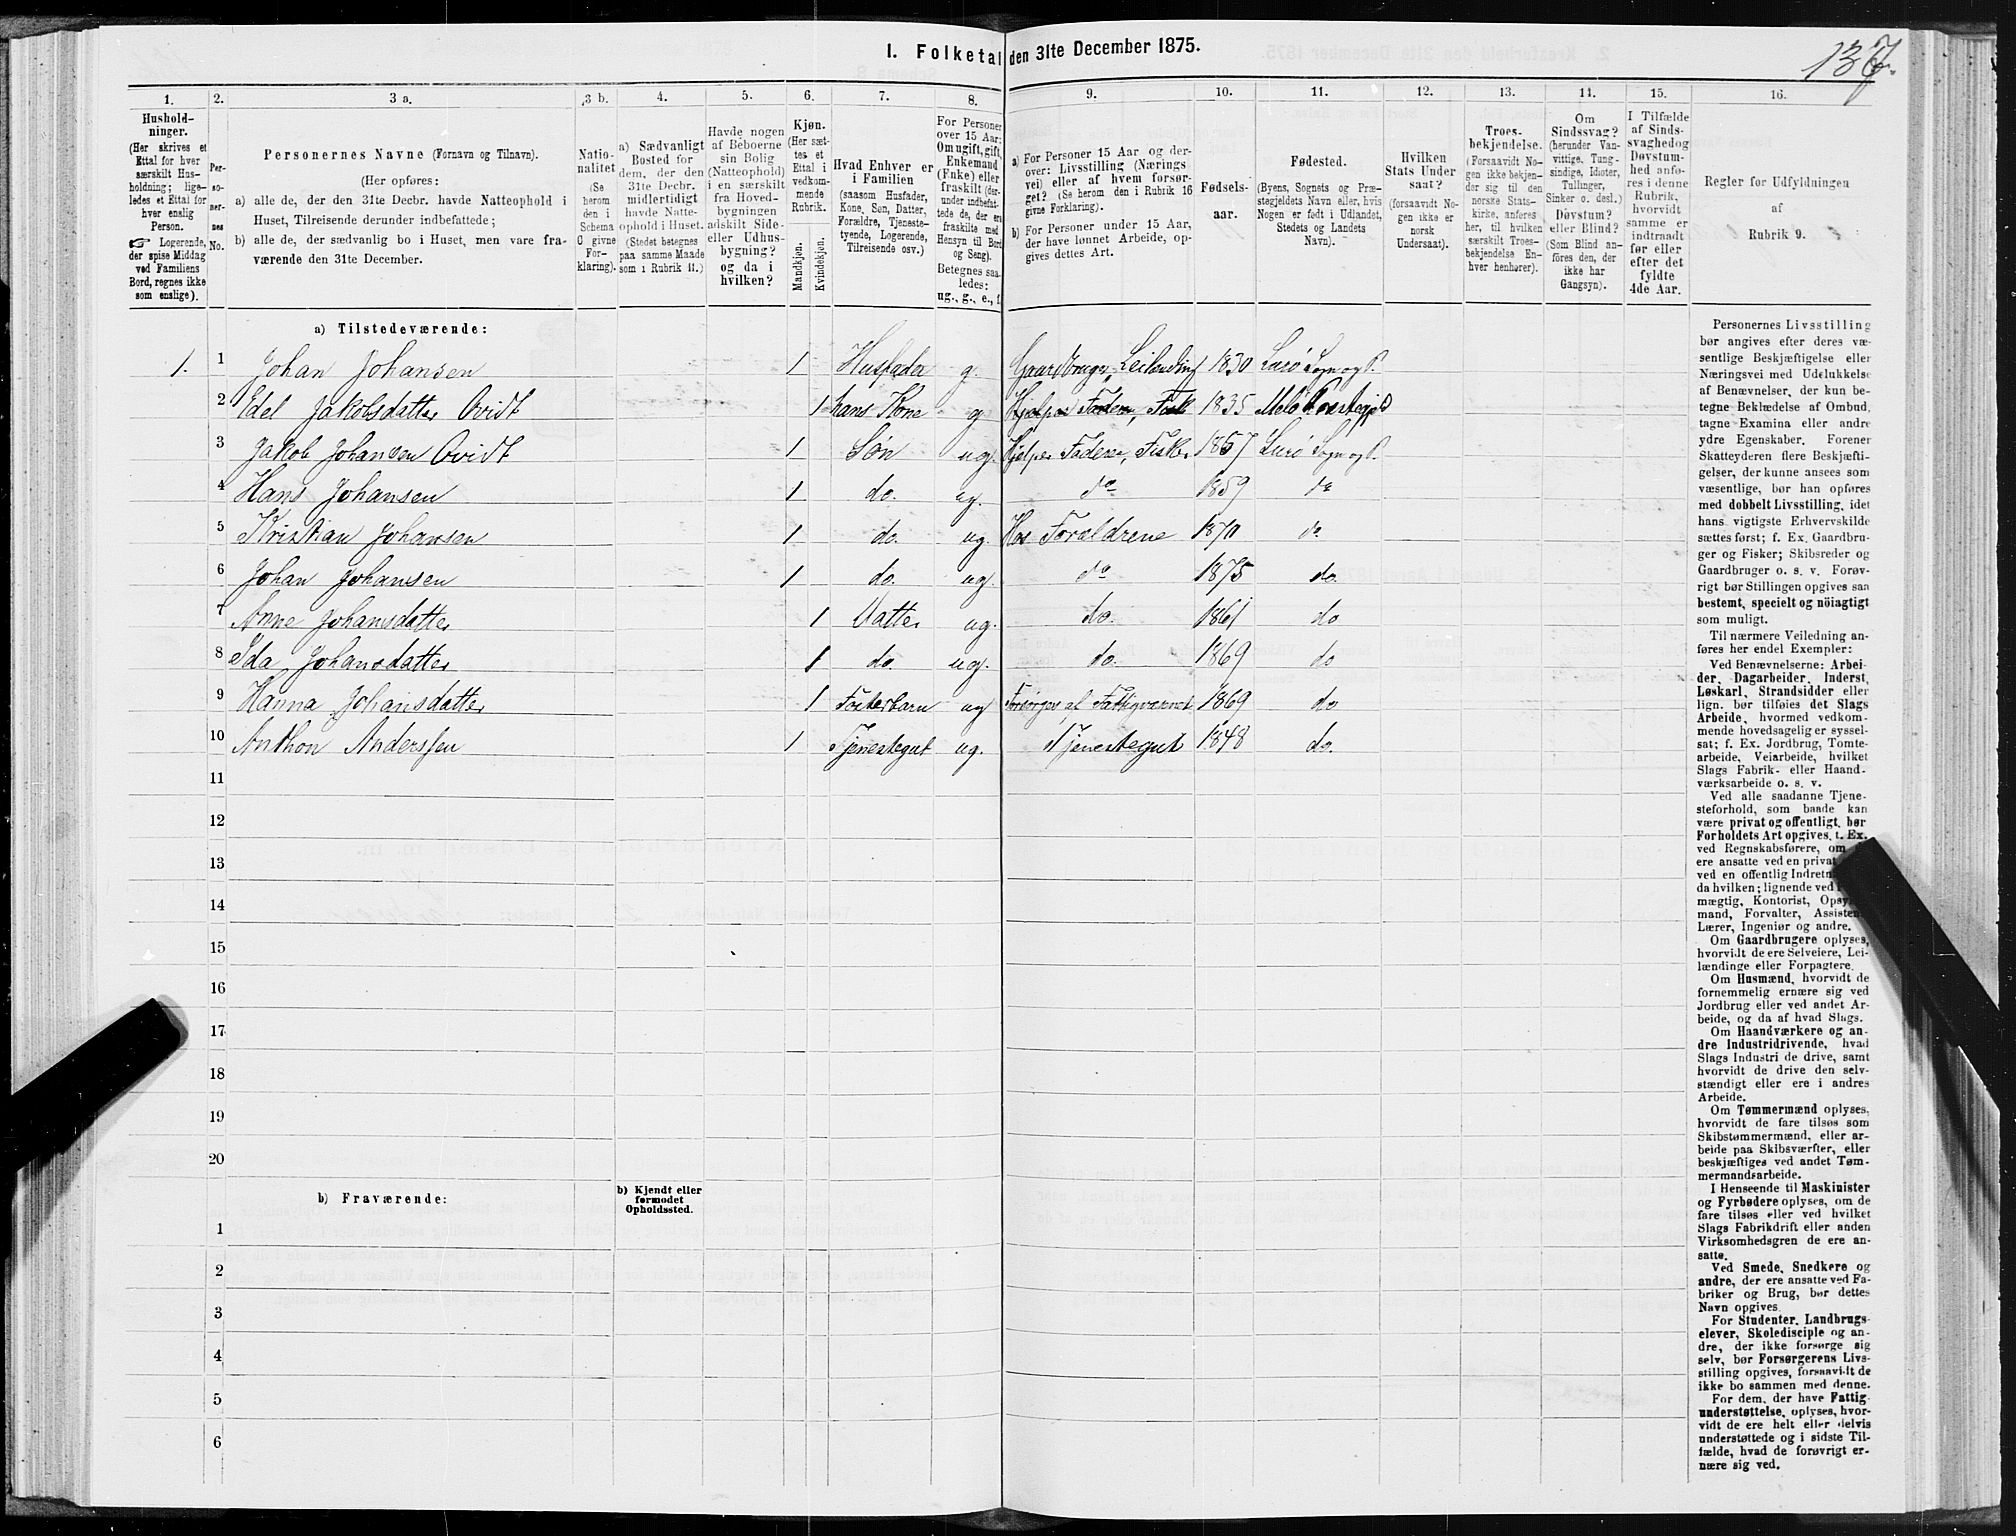 I. Folketal den 31te December 1875.
137.
1.
2.
3 a.
3 b.
4.
5.
6.
7.
8.
9.
10.
11.
12.
13.
14.
15.
16.
Hushold-
ninger.
(Her skrives et
Ettal for hver
særskilt Hus-
holdning; lige-
ledes et Ettal for
hver enslig
Person.
☞ Logerende,
der spise Middag
ved Familiens
Bord, regnes ikke
som enslige).
Per-
so-
ner-
nes
No.
Personernes Navne (Fornavn og Tilnavn).
(Her opføres:
a) alle de, der den 31te Decbr. havde Natteophold i
Huset, Tilreisende derunder indbefattede;
b) alle de, der sædvanlig bo i Huset, men vare fra-
værende den 31te December.
Natio-
nalitet
(Se
herom
den i
Schema
O givne
For-
klaring).
a) Sædvanligt
Bosted for
dem, der den
31te Decbr.
midlertidigt
havde Natte-
ophold i Huset.
(Stedet betegnes
paa samme Maade
som i Rubrik 11.)
Havde nogen
af Beboerne
sin Bolig
(Natteophold)
i en særskilt
fra Hoved-
bygningen
adskilt Side-
eller Udhus-
bygning?
og da i
hvilken?
Kjøn.
(Her sæt-
tes et
Ettal i
vedkom-
mende
Rubrik.
Mandkjøn.
Kvindekjøn.
Hvad Enhver er
i Familien
(saasom Husfader,
Kone, Søn, Datter,
Forældre, Tjeneste-
tyende, Logerende,
Tilreisende osv.)
For Personer
over 15 Aar:
Om ugift, gift,
Enkemand
(Enke) eller
fraskilt (der-
under indbefat-
tede de, der ere
fraskilte med
Hensyn til Bord
og Seng).
Betegnes saa-
ledes:
ug., g., e., f.
a) For Personer 15 Aar og der-
over: Livsstilling (Nærings-
vei) eller af hvem forsør-
get? (Se herom den i Rubrik 16
givne Forklaring).
b) For Personer under 15 Aar,
der have lønnet Arbeide, op-
gives dettes Art.
Fødsels-
aar.
Fødested.
(Byens, Sognets og Præ-
stegjeldets Navn eller, hvis
Nogen er født i Udlandet,
Stedets og Landets
Navn).
Hvilken
Stats Under
saat?
(forsaavidt No-
gen ikke er
norsk
Undersaat).
Troes-
bekjendelse.
(Forsaavidt No-
gen ikke bekjen-
der sig til den
norske Stats-
kirke, anføres
her, til hvilken
særskilt Troes-
bekjendelse En-
hver henhører).
Om
Sindssvag?
(herunder Van-
vittige, Tung-
sindige, Idioter,
Tullinger,
Sinker o. desl.)
Døvstum?
eller Blind?
(Som Blind an-
føres den, der
ikke har
Gangsyn).
I Tilfælde
af Sinds-
svaghed og
Døvstum-
hed anfø-
res i denne
Rubrik,
hvorvidt
samme er
indtraadt
før eller
efter det
fyldte
4de Aar.
Regler for Udfyldningen
af
Rubrik 9.
a) Tilstedeværende:
1. 1 Johan Johansen 1 Husfader g. Gaardbruger, Leilænding 1830 Lurø Sogn og P.
2 Edel Jakobsdatter Qvidt 1 hans Kone g Hjelper Faderen, Fisk 1835 Melø Præstegjæld
3 Jakob Johansen Qvidt 1 Søn ug. Hjelper Faderen, Fisker 1857 Lurø Sogn og P.
4 Hans Johansen 1 do. ug. do 1859 do
5 Kristian Johansen 1 do. ug Hos Forældrene 1870 do
6 Johan Johansen 1 do. ug. do 1875 do.
7 Anne Johansdatter 1 Datter ug. do. 1861 do
8 Ida Johansdatter 1 do. ug. do. 1869 do
9 Hanna Johansdatter 1 Fosterbarn ug Forsørges af Fattigvæsnet 1869 do.
10 Anthon Anderssen 1 Tjenestegut ug. Tjenestegut 1848 do.
11
12
13
14
15
16
17
18
19
20
b) Fraværende:
b) Kjendt eller
formodet
Opholdssted.
1
2
3
4
5
6
Personernes Livsstilling
bør angives efter deres væ-
sentlige Beskjæftigelse eller
Næringsvei med Udelukkelse
af Benævnelser, der kun be-
tegne Beklædelse af Ombud,
tagne Examina eller andre
ydre Egenskaber. Forener
Skatteyderen flere Beskjæfti-
gelser, der kunne ansees som
væsentlige, bør han opføres
med dobbelt Livsstilling, idet
hans vigtigste Erhvervskilde
sættes først; f. Ex. Gaardbru-
ger og Fisker; Skibsreder og
Gaardbruger o. s. v. Forøv-
rigt bør Stillingen opgives saa
bestemt, specielt og nöiagtigt
som muligt.
Til nærmere Veiledning an-
føres her endel Exempler:
Ved Benævnelserne: Arbei-
der, Dagarbeider, Inderst,
Løskarl, Strandsidder eller
lign. bør tilføies det Slags
Arbeide, hvormed vedkom-
mende hovedsagelig er syssel-
sat; f. Ex. Jordbrug, Tomte-
arbeide, Veiarbeide, hvilket
Slags Fabrik- eller Haand-
værksarbeide o. s. v.
Ved alle saadanne Tjene-
steforhold, som baade kan
være privat og offentligt, bør
Forholdets Art opgives, t. Ex.
ved Regnskabsførere, om
ere ansatte ved en privat
ved en offentlig Indretn
da hvilken; lignende ved
mægtig, Kontorist, Opsy
mand, Forvalter, Assisten
Lærer, Ingeniør og andre.
Om Gaardbrugere oplyses,
hvorvidt de ere Selveiere, Lei-
lændinge eller Forpagtere.
Om Husmænd, hvorvidt de
fornemmelig ernære sig ved
Jordbrug eller ved andet Ar-
beide, og da af hvad Slags.
Om Haandværkere og an-
dre Industridrivende, hvad
Slags Industri de drive, samt
hvorvidt de drive den selv-
stændigt eller ere i andres
Arbeide.
Om Tømmermænd oplyses,
hvorvidt de fare tilsøs som
Skibstømmermænd, eller ar-
beide paa Skibsværfter, eller
beskjæftiges ved andet Tøm-
mermandsarbeide.
I Henseende til Maskinister
og Fyrbødere oplyses, om de
fare tilsøs eller ved hvilket
Slags Fabrikdrift eller anden
Virksomhedsgren de ere an-
satte.
Ved Smede, Snedkere og
andre, der ere ansatte ved Fa-
briker og Brug, bør dettes
Navn opgives.
For Studenter, Landbrugs-
elever, Skoledisciple og an-
dre, der ikke forsørge sig
selv, bør Forsørgerens Livs-
stilling opgives, forsaavidt de
ikke bo sammen med denne.
For dem, der have Fattig
understøttelse, oplyses, hvor-
vidt de ere helt eller delvis
understøttede og i sidste Til-
fælde, hvad de forøvrigt er-
nære sig ved.